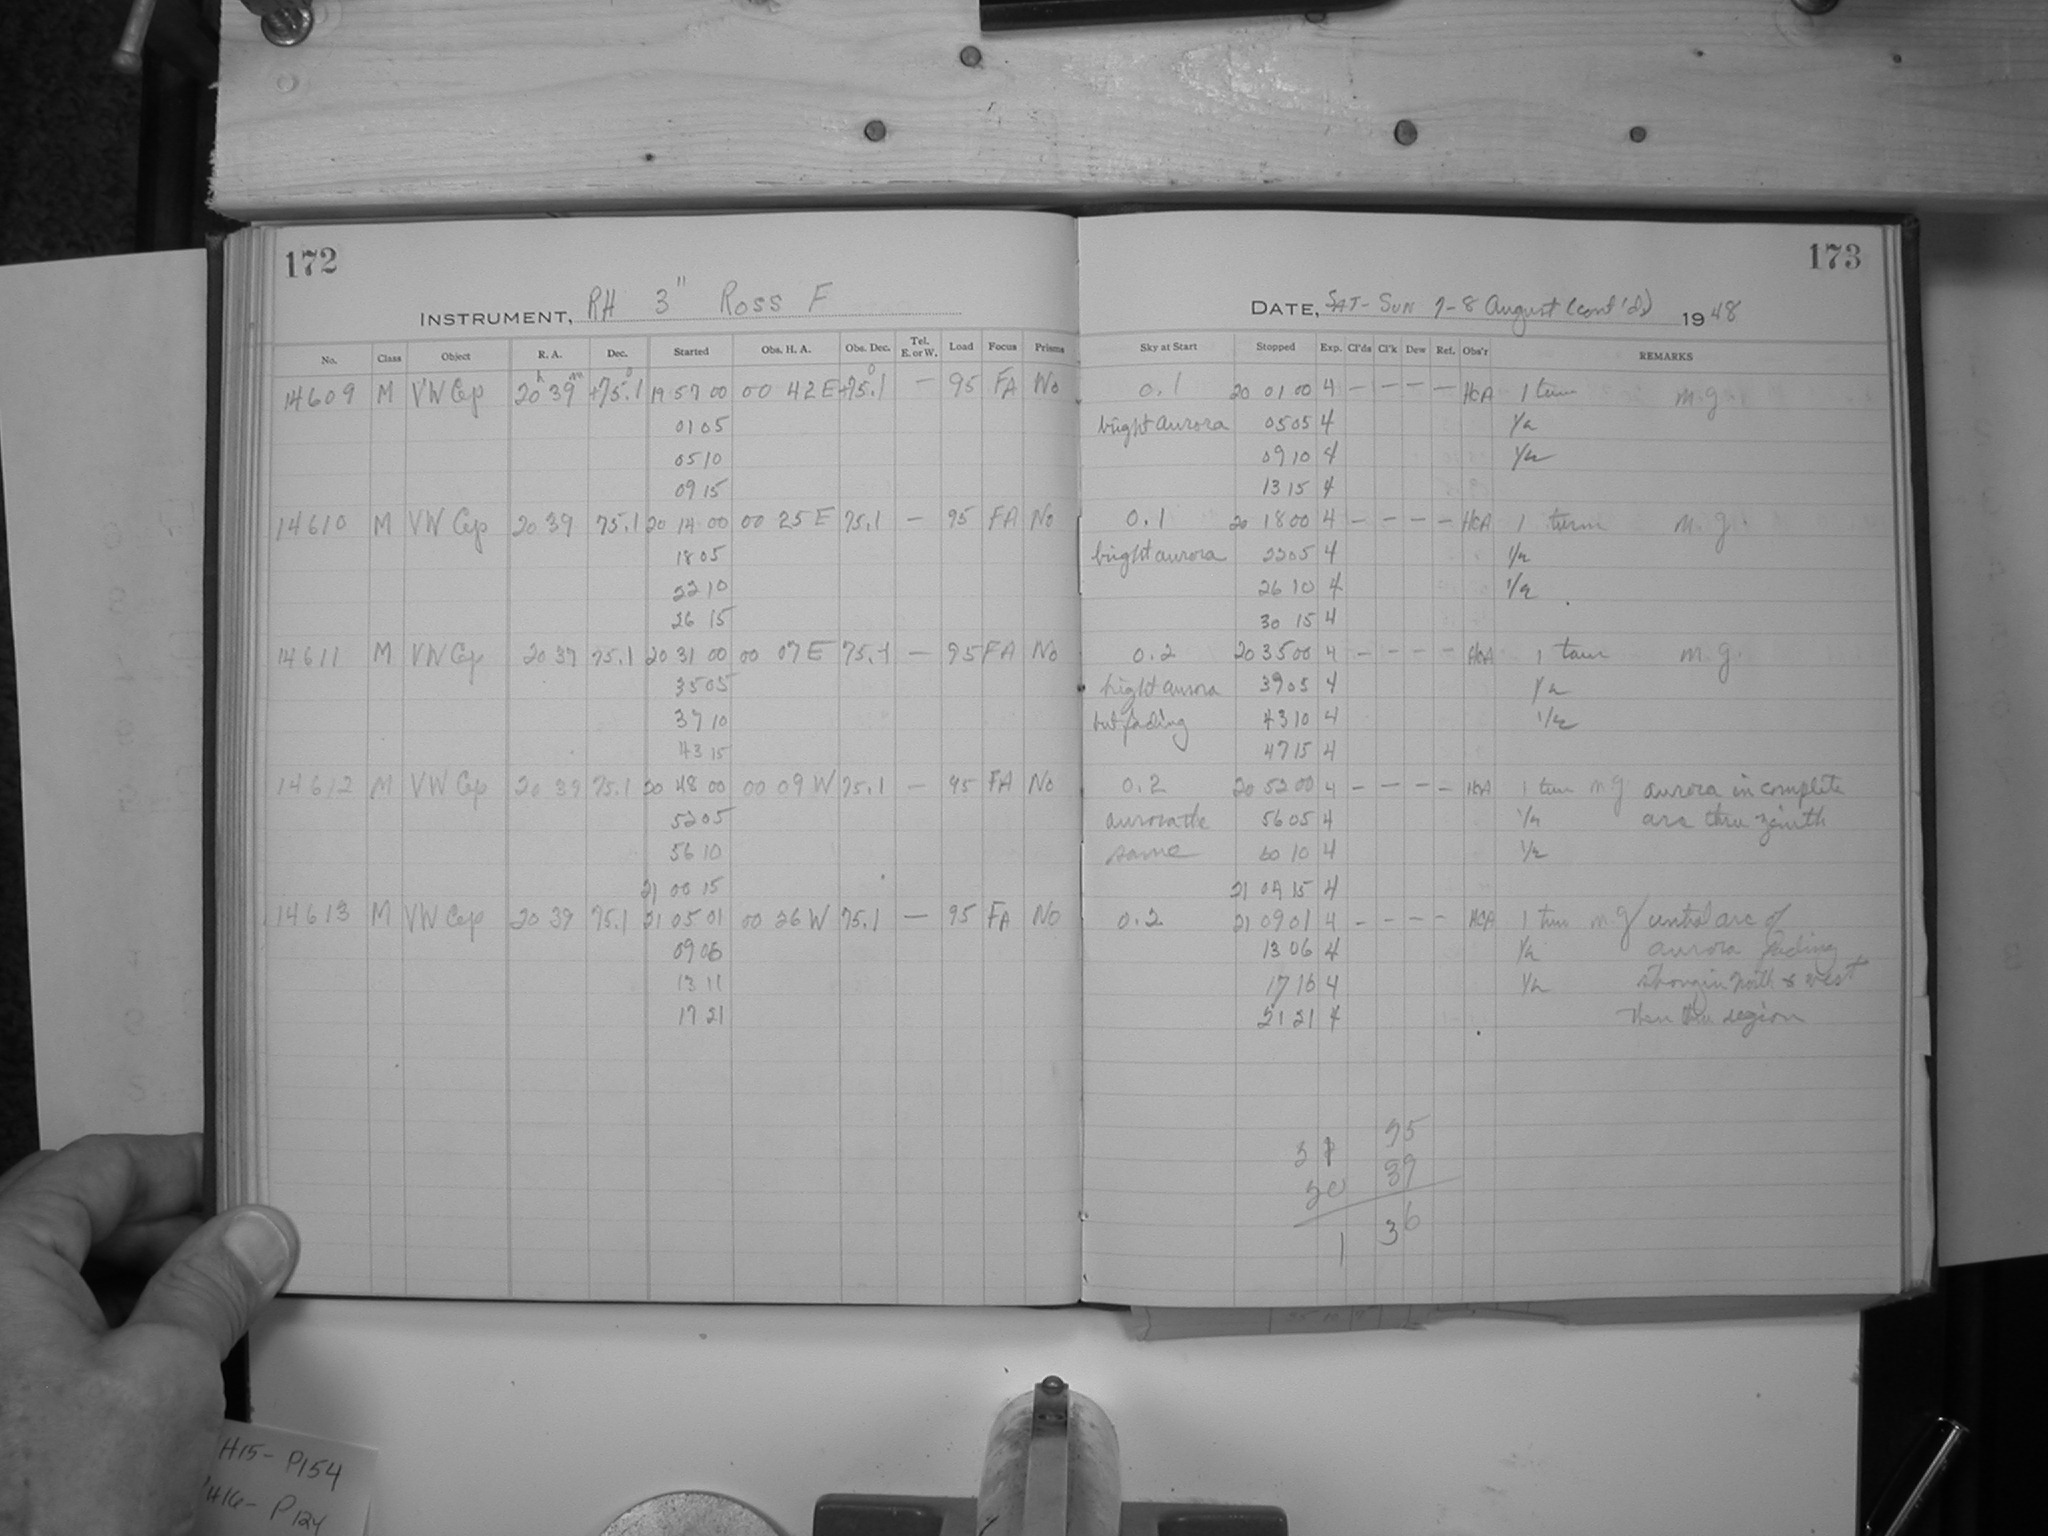 172
173
INSTRUMENT, RH 3" Ross F
DATE, SAT-SUN 7-8 August (cont'd) 1948
No. Class Object R. A. Dec. Started Obs. H. A. Obs. Dec. Tel. E. or W. Load Focus Prisms Sky at Start Stopped Exp. Cl'ds Cl'k Dew Ref. Obs'r REMARKS
14609 M VW Cep 20h 39m +75.1° 19 57 00 00 42 E +75.1° — 95 FA No 0.1 20 01 00 4 — — — — HCA 1 turn m.g.
01 05 bright aurora 05 05 4 1/2
05 10 09 10 4 1/2
09 15 13 15 4
14610 M VW Cep 20 39 75.1 20 14 00 00 25 E 75.1 — 95 FA No 0.1 20 18 00 4 — — — — HCA 1 turn m.g.
18 05 bright aurora 22 05 4 1/2
22 10 26 10 4 1/2
26 15 30 15 4
14611 M VW Cep 20 39 75.1 20 31 00 00 07 E 75.1 — 95 FA No 0.2 20 35 00 4 — — — — HCA 1 turn m.g.
35 05 bright aurora 39 05 4 1/2
39 10 but fading 43 10 4 1/2
43 15 47 15 4
14612 M VW Cep 20 39 75.1 20 48 00 00 09 W 75.1 — 95 FA No 0.2 20 52 00 4 — — — — HCA 1 turn mg aurora in complete
52 05 aurora the 56 05 4 1/2 arc thru zenith
56 10 same 60 10 4 1/2
21 00 15 21 04 15 4
14613 M VW Cep 20 39 75.1 21 05 01 00 26 W 75.1 — 95 FA No 0.2 21 09 01 4 — — — — HCA 1 turn m.g. central arc of
09 06 13 06 4 1/2 aurora fading
13 11 17 16 4 1/2 north & west
17 21 21 21 4 region
95
39
30
1 36
H15- P154
H16- P124